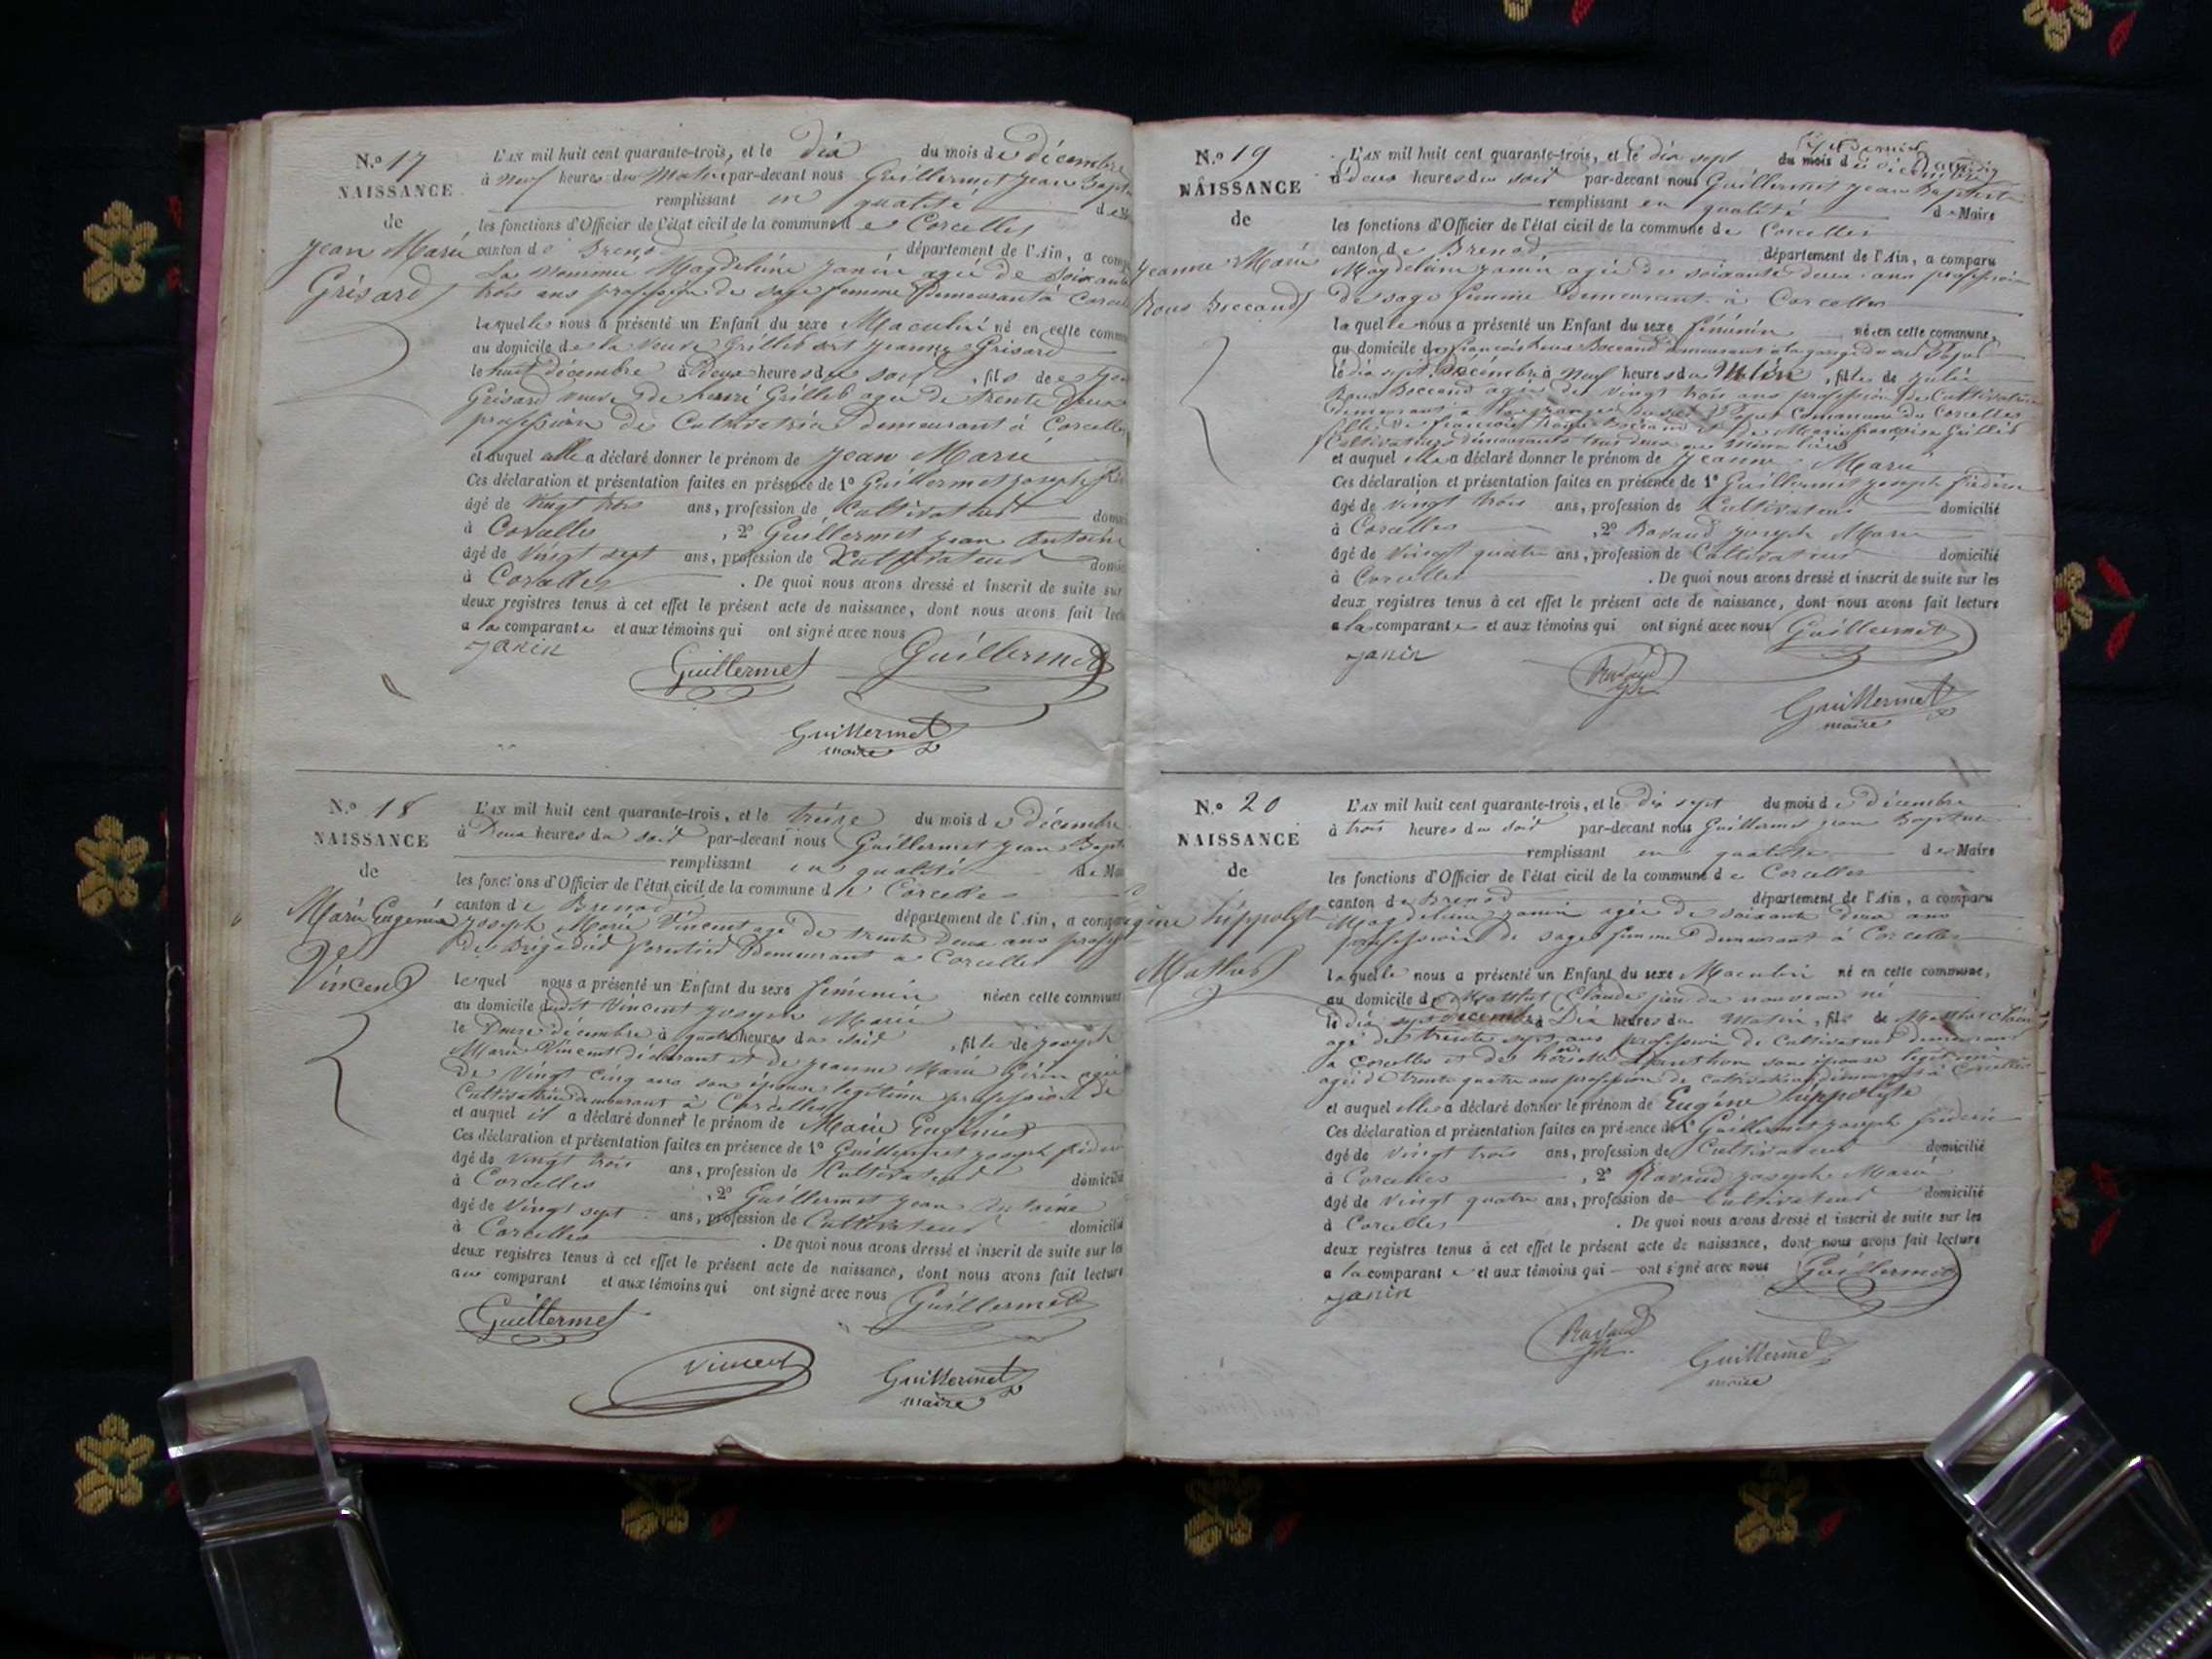 N.o 17
NAISSANCE
de
Jean Marie
Grisard
L'AN mil huit cent quarante-trois, et le dix du mois de décembre
à neuf heures du Matin par-devant nous Guillermet Jean Bapt
remplissant en qualité de
les fonctions d'Officier de l'état civil de la commune de Corcelles
canton de Brenod département de l'Ain, a comp
La nommée Magdeleine Janin agée de Soixante
trois ans profession de sage femme Demeurant à Corcel
laquelle nous a présenté un Enfant du sexe Maculin né en cette comm
au domicile de la veuve Grillet Jeanne Grisard
le huit décembre à deux heures du soir, fils de
Grisard veuve de henri Grillet agée de trente deux
profession de Cultivatrice demeurant à Corcelles
et auquel elle a déclaré donner le prénom de Jean Marie
Ces déclaration et présentation faites en présence de 1o Guillermet joseph
âgé de Vingt trois ans, profession de Cultivateur domi
à Corcelles, 2o Guillermet Jean Antoine
âgé de Vingt sept ans, profession de Cultivateur domi
à Corcelles. De quoi nous avons dressé et inscrit de suite sur
deux registres tenus à cet effet le présent acte de naissance, dont nous avons fait lect
a la comparante et aux témoins qui ont signé avec nous
Janin
Guillermet Guillermet
Guillermet
maire
N.o 18
NAISSANCE
de
Marie Eugenie
Vincent
L'AN mil huit cent quarante-trois, et le treize du mois de décembre
à Deux heures du soir par-devant nous Guillermet Jean Bapt
remplissant en qualité de Mai
les fonctions d'Officier de l'état civil de la commune de Corcelles
canton de Brenod département de l'Ain, a compa
Joseph Marie Vincent agé de trente deux ans profes
de Brigadier forestier Demeurant a Corcelles
lequel nous a présenté un Enfant du sexe féminin née en cette commune
au domicile dudit Vincent Joseph Marie
le Douze décembre à quatre heures du soir, fille de Joseph
Marie Vincent déclarant et de Jeanne Marie agée
de Vingt cinq ans son épouse legitime profession de
Cultivatrice demeurant à Corcelles
et auquel il a déclaré donner le prénom de Marie Eugénie
Ces déclaration et présentation faites en présence de 1o Guillermet joseph
âgé de vingt trois ans, profession de Cultivateur domicilié
à Corcelles, 2o Guillermet Jean Antoine
âgé de Vingt sept ans, profession de Cultivateur domicilié
à Corcelles. De quoi nous avons dressé et inscrit de suite sur les
deux registres tenus à cet effet le présent acte de naissance, dont nous avons fait lecture
au comparant et aux témoins qui ont signé avec nous Guillermet
Guillermet
Vincent
Guillermet
maire
N.o 19
NAISSANCE
de
Jeanne Marie
Roux Boccand
L'AN mil huit cent quarante-trois, et le dix sept du mois de décembre
à deux heures du soir par-devant nous Guillermet Jean Baptiste
remplissant en qualité de Maire
les fonctions d'Officier de l'état civil de la commune de Corcelles
canton de Brenod département de l'Ain, a comparu
Magdeleine Janin agée de soixante deux ans profession
de sage femme demeurant à Corcelles
laquelle nous a présenté un Enfant du sexe féminin née en cette commune,
au domicile de françois Roux Boccand demeurant à la grange
le dix sept décembre à neuf heures du Matin, fille de Julie
Roux Boccand agée de vingt trois ans profession de Cultivatrice
demeurant a la grange commune de Corcelles
fille de francois Roux Boccand et de Marie françoise Grillet
Cultivateurs demeurants tous deux au même lieu
et auquel elle a déclaré donner le prénom de Jeanne Marie
Ces déclaration et présentation faites en présence de 1o Guillermet joseph
âgé de vingt trois ans, profession de Cultivateur domicilié
à Corcelles, 2o Ravaud joseph Marie
âgé de vingt quatre ans, profession de Cultivateur domicilié
à Corcelles. De quoi nous avons dressé et inscrit de suite sur les
deux registres tenus à cet effet le présent acte de naissance, dont nous avons fait lecture
a la comparante et aux témoins qui ont signé avec nous Guillermet
Janin
Ravaud
Guillermet
maire
N.o 20
NAISSANCE
de
hippolyt
L'AN mil huit cent quarante-trois, et le dix sept du mois de décembre
à trois heures du soir par-devant nous Guillermet jean Baptiste
remplissant en qualité de Maire
les fonctions d'Officier de l'état civil de la commune de Corcelles
canton de Brenod département de l'Ain, a comparu
Magdeleine Janin agée de soixante deux ans
profession de sage femme demeurant à Corcelles
laquelle nous a présenté un Enfant du sexe Maculin né en cette commune,
au domicile de Claude père du nouveau né
le dix sept decembre à Dix heures du matin, fils de
agé de trente sept ans profession de Cultivateur demeurant
a Corcelles et de son épouse legitime
agée de trente quatre ans profession de cultivatrice demeurant à Corcelles
et auquel elle a déclaré donner le prénom de Eugéne hippolyte
Ces déclaration et présentation faites en présence de 1o Guillermet joseph
âgé de vingt trois ans, profession de Cultivateur domicilié
à Corcelles, 2o Ravaud joseph Marie
âgé de vingt quatre ans, profession de Cultivateur domicilié
à Corcelles. De quoi nous avons dressé et inscrit de suite sur les
deux registres tenus à cet effet le présent acte de naissance, dont nous avons fait lecture
a la comparante et aux témoins qui ont signé avec nous Guillermet
Janin
Ravaud
Guillermet
maire